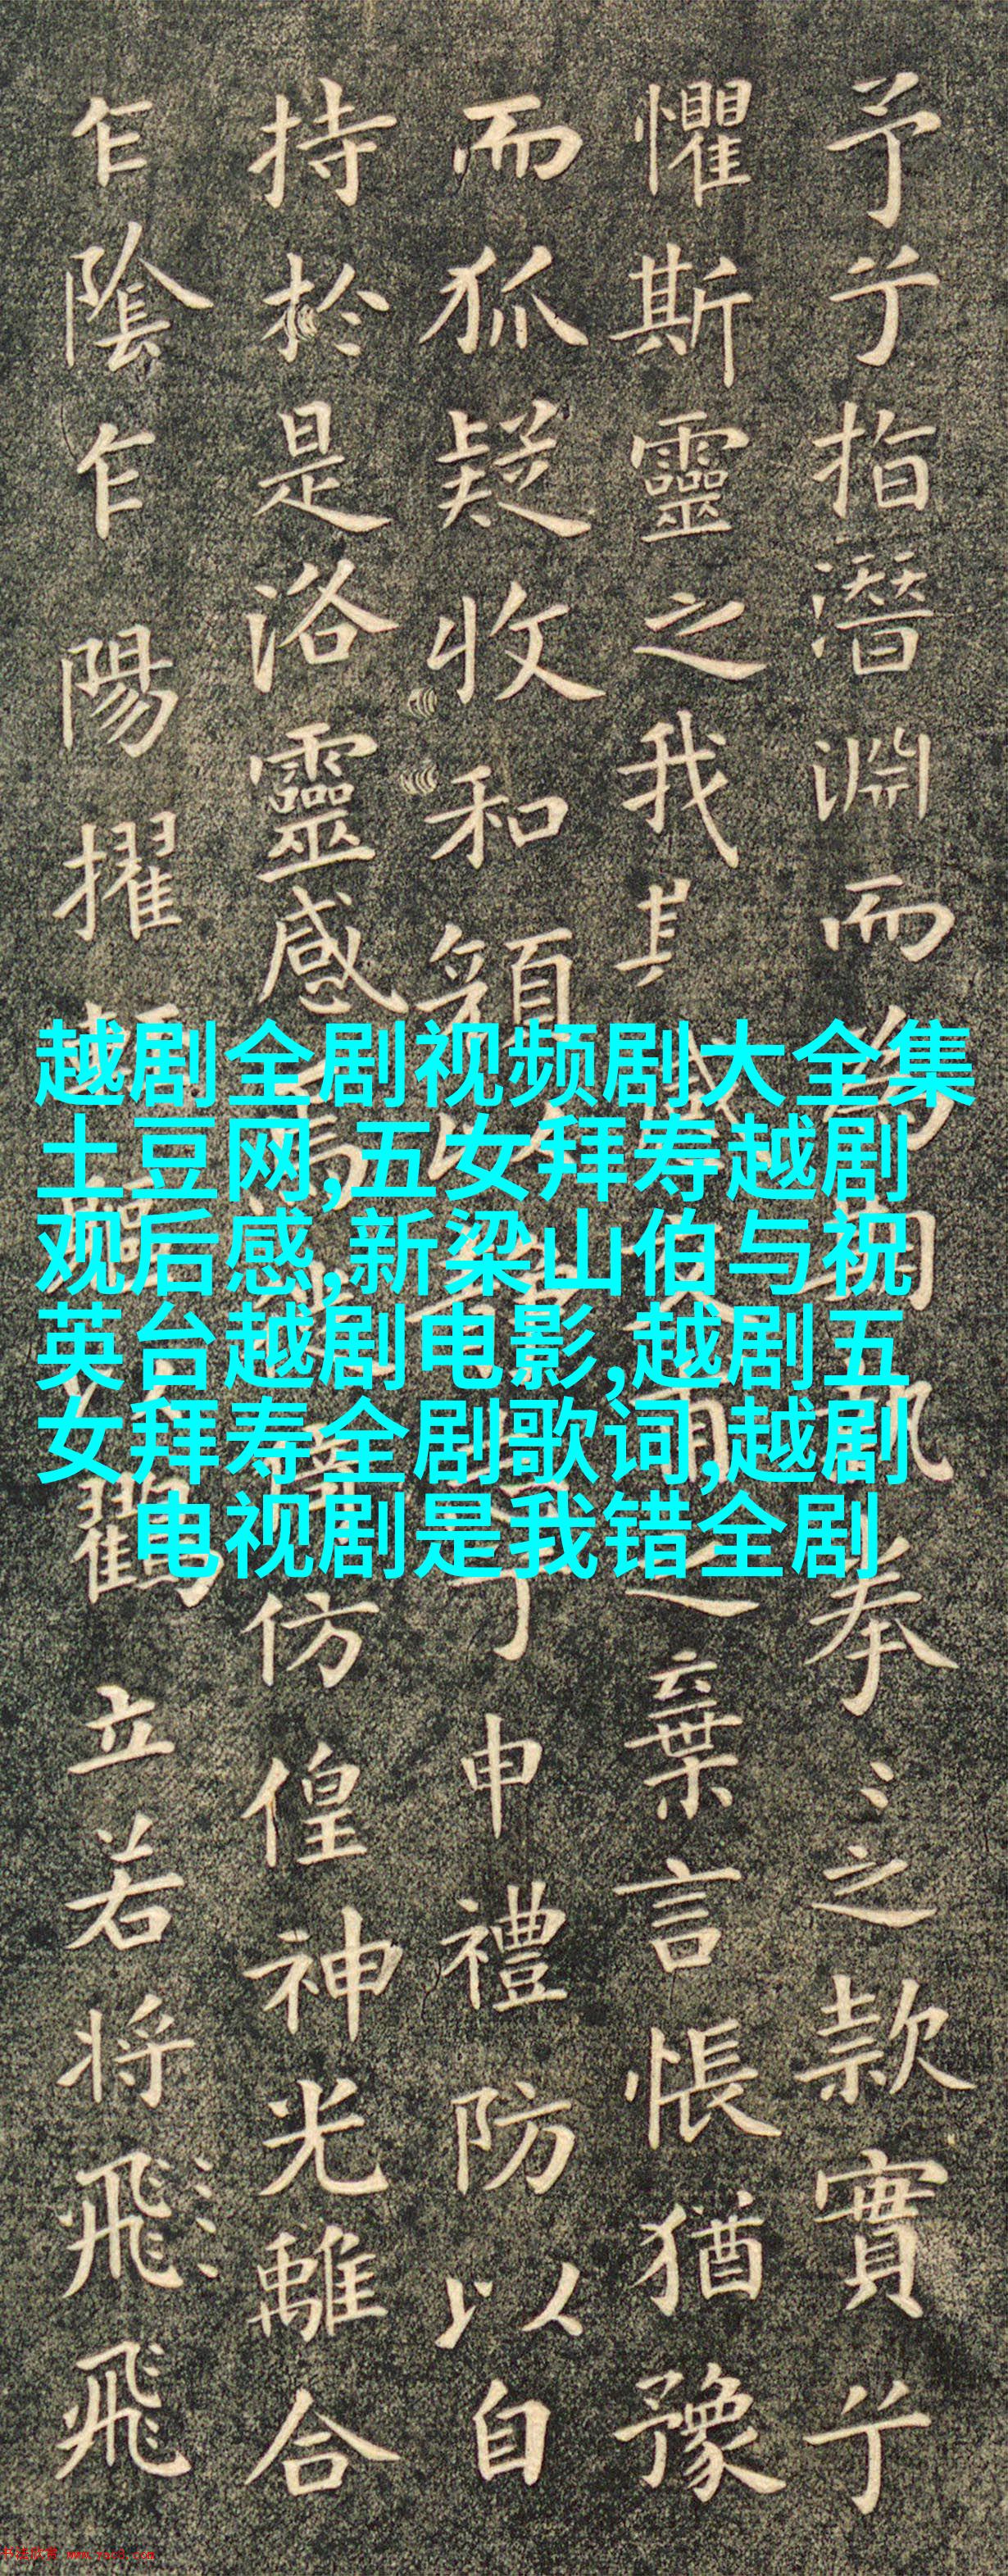 予兮指潛淵而拳〻之款實兮
懼斯靈之我之棄言悵猶豫
而狐疑收和顏申禮防以自
持於是洛靈感仿偟神光離合
乍陰乍陽擢鶴立若將飛飛
越剧全剧视频剧大全集
土豆网,五女拜寿越剧
观后感,新梁山伯与祝
英台越剧电影,越剧五
女拜寿全剧歌词,越剧
电视剧是我错全剧